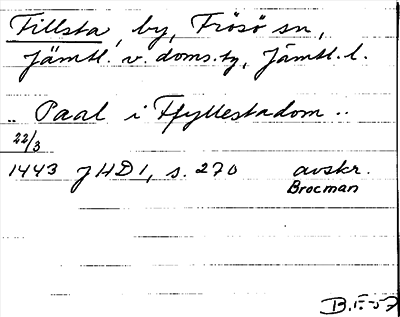 Fillsta, by, Frösö sn,
Jämtl. v. doms.tg, Jämtl. l.
.. Paal i Ffyllestadom ..
22/3
1443 JHD 1, s. 270 avskr.
Brocman
B.E-57